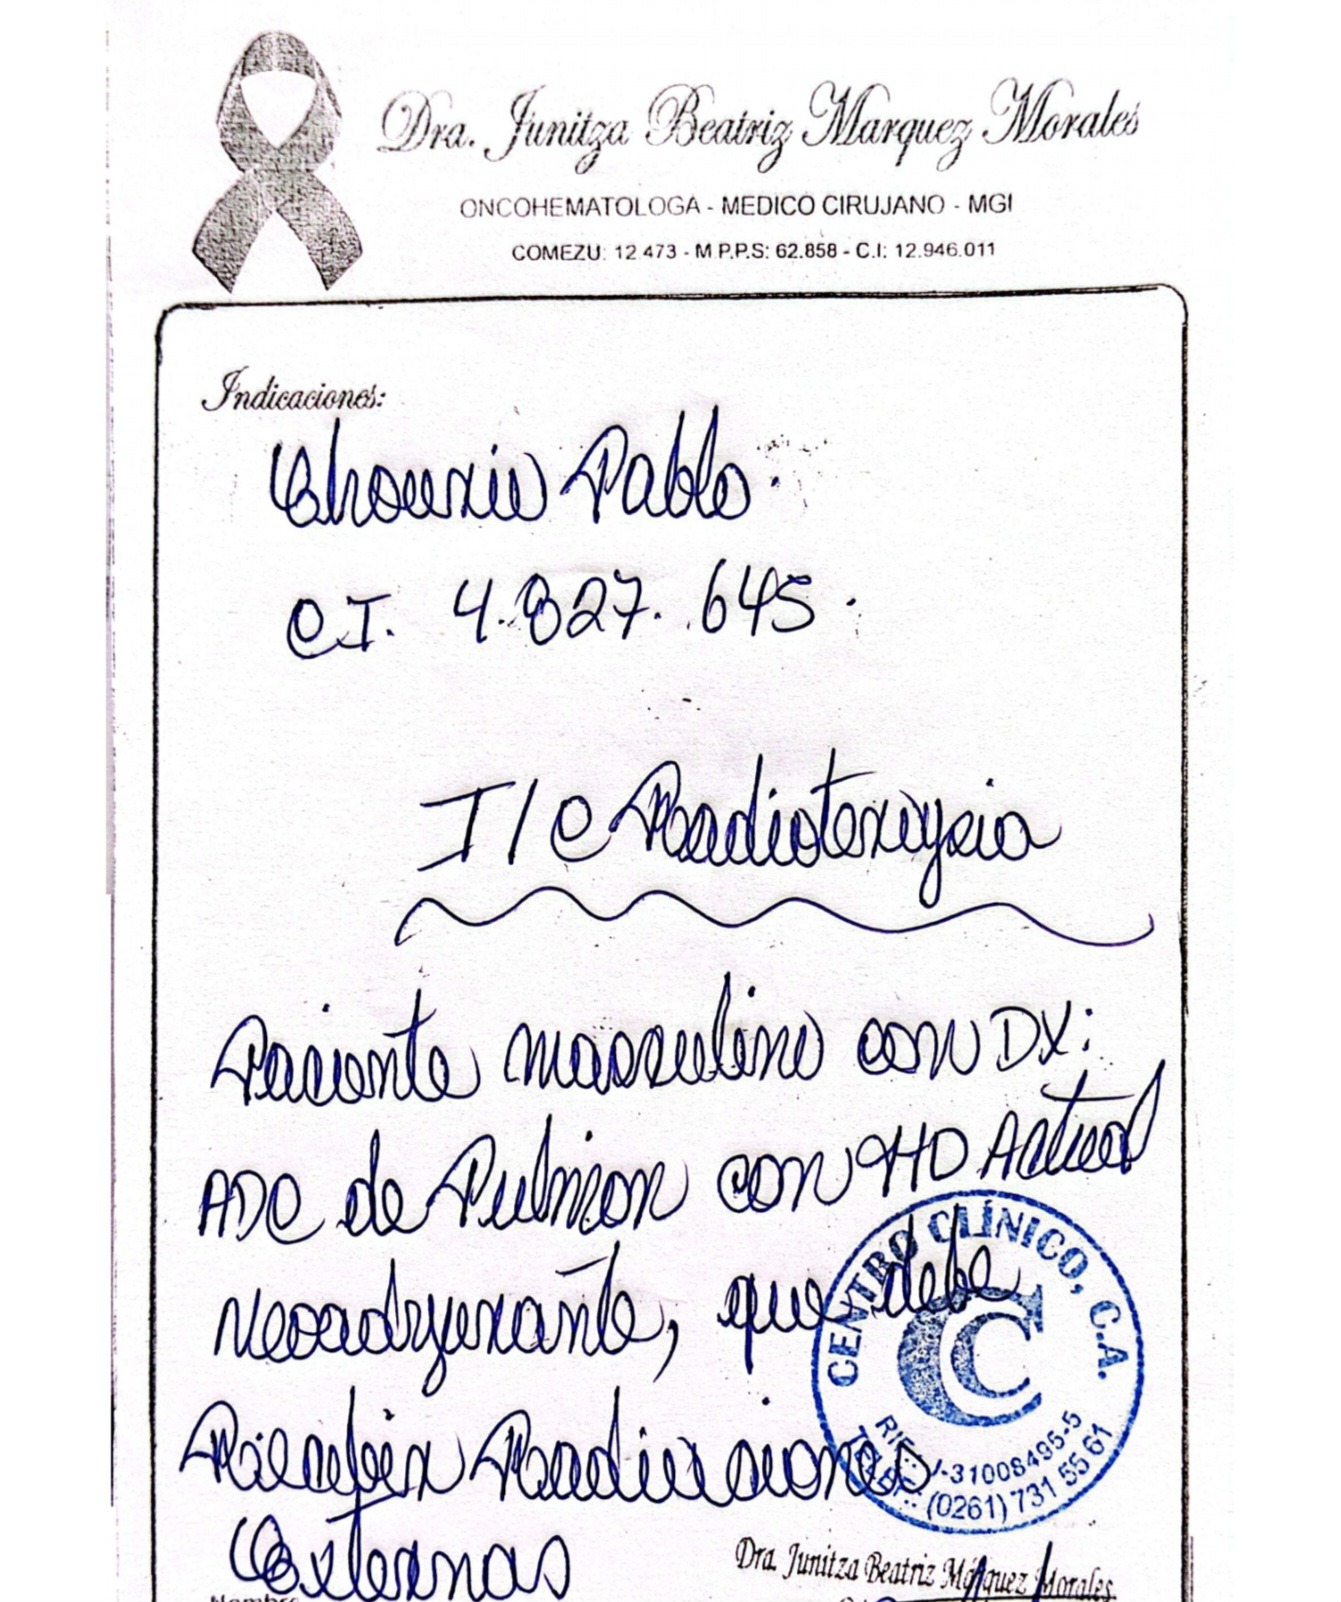 Dra. Junitza Beatriz Marquez Morales
ONCOHEMATOLOGA - MEDICO CIRUJANO - MGI
COMEZU: 12.473 - M.P.P.S: 62.858 - C.I: 12.946.011
Indicaciones:
Pablo.
C.I. 4.827.645.
I/C Radioterapia
Paciente masculino con DX:
ADC de Pulmon con HD Actual
neoadyuvante, que debe
Recibir Radiaciones
Externas
CENTRO CLÍNICO, C.A.
CC
RIF.: J-31008495-5
TELEF.: (0261) 731 55 61
Dra. Junitza Beatriz Márquez Morales
Nombre